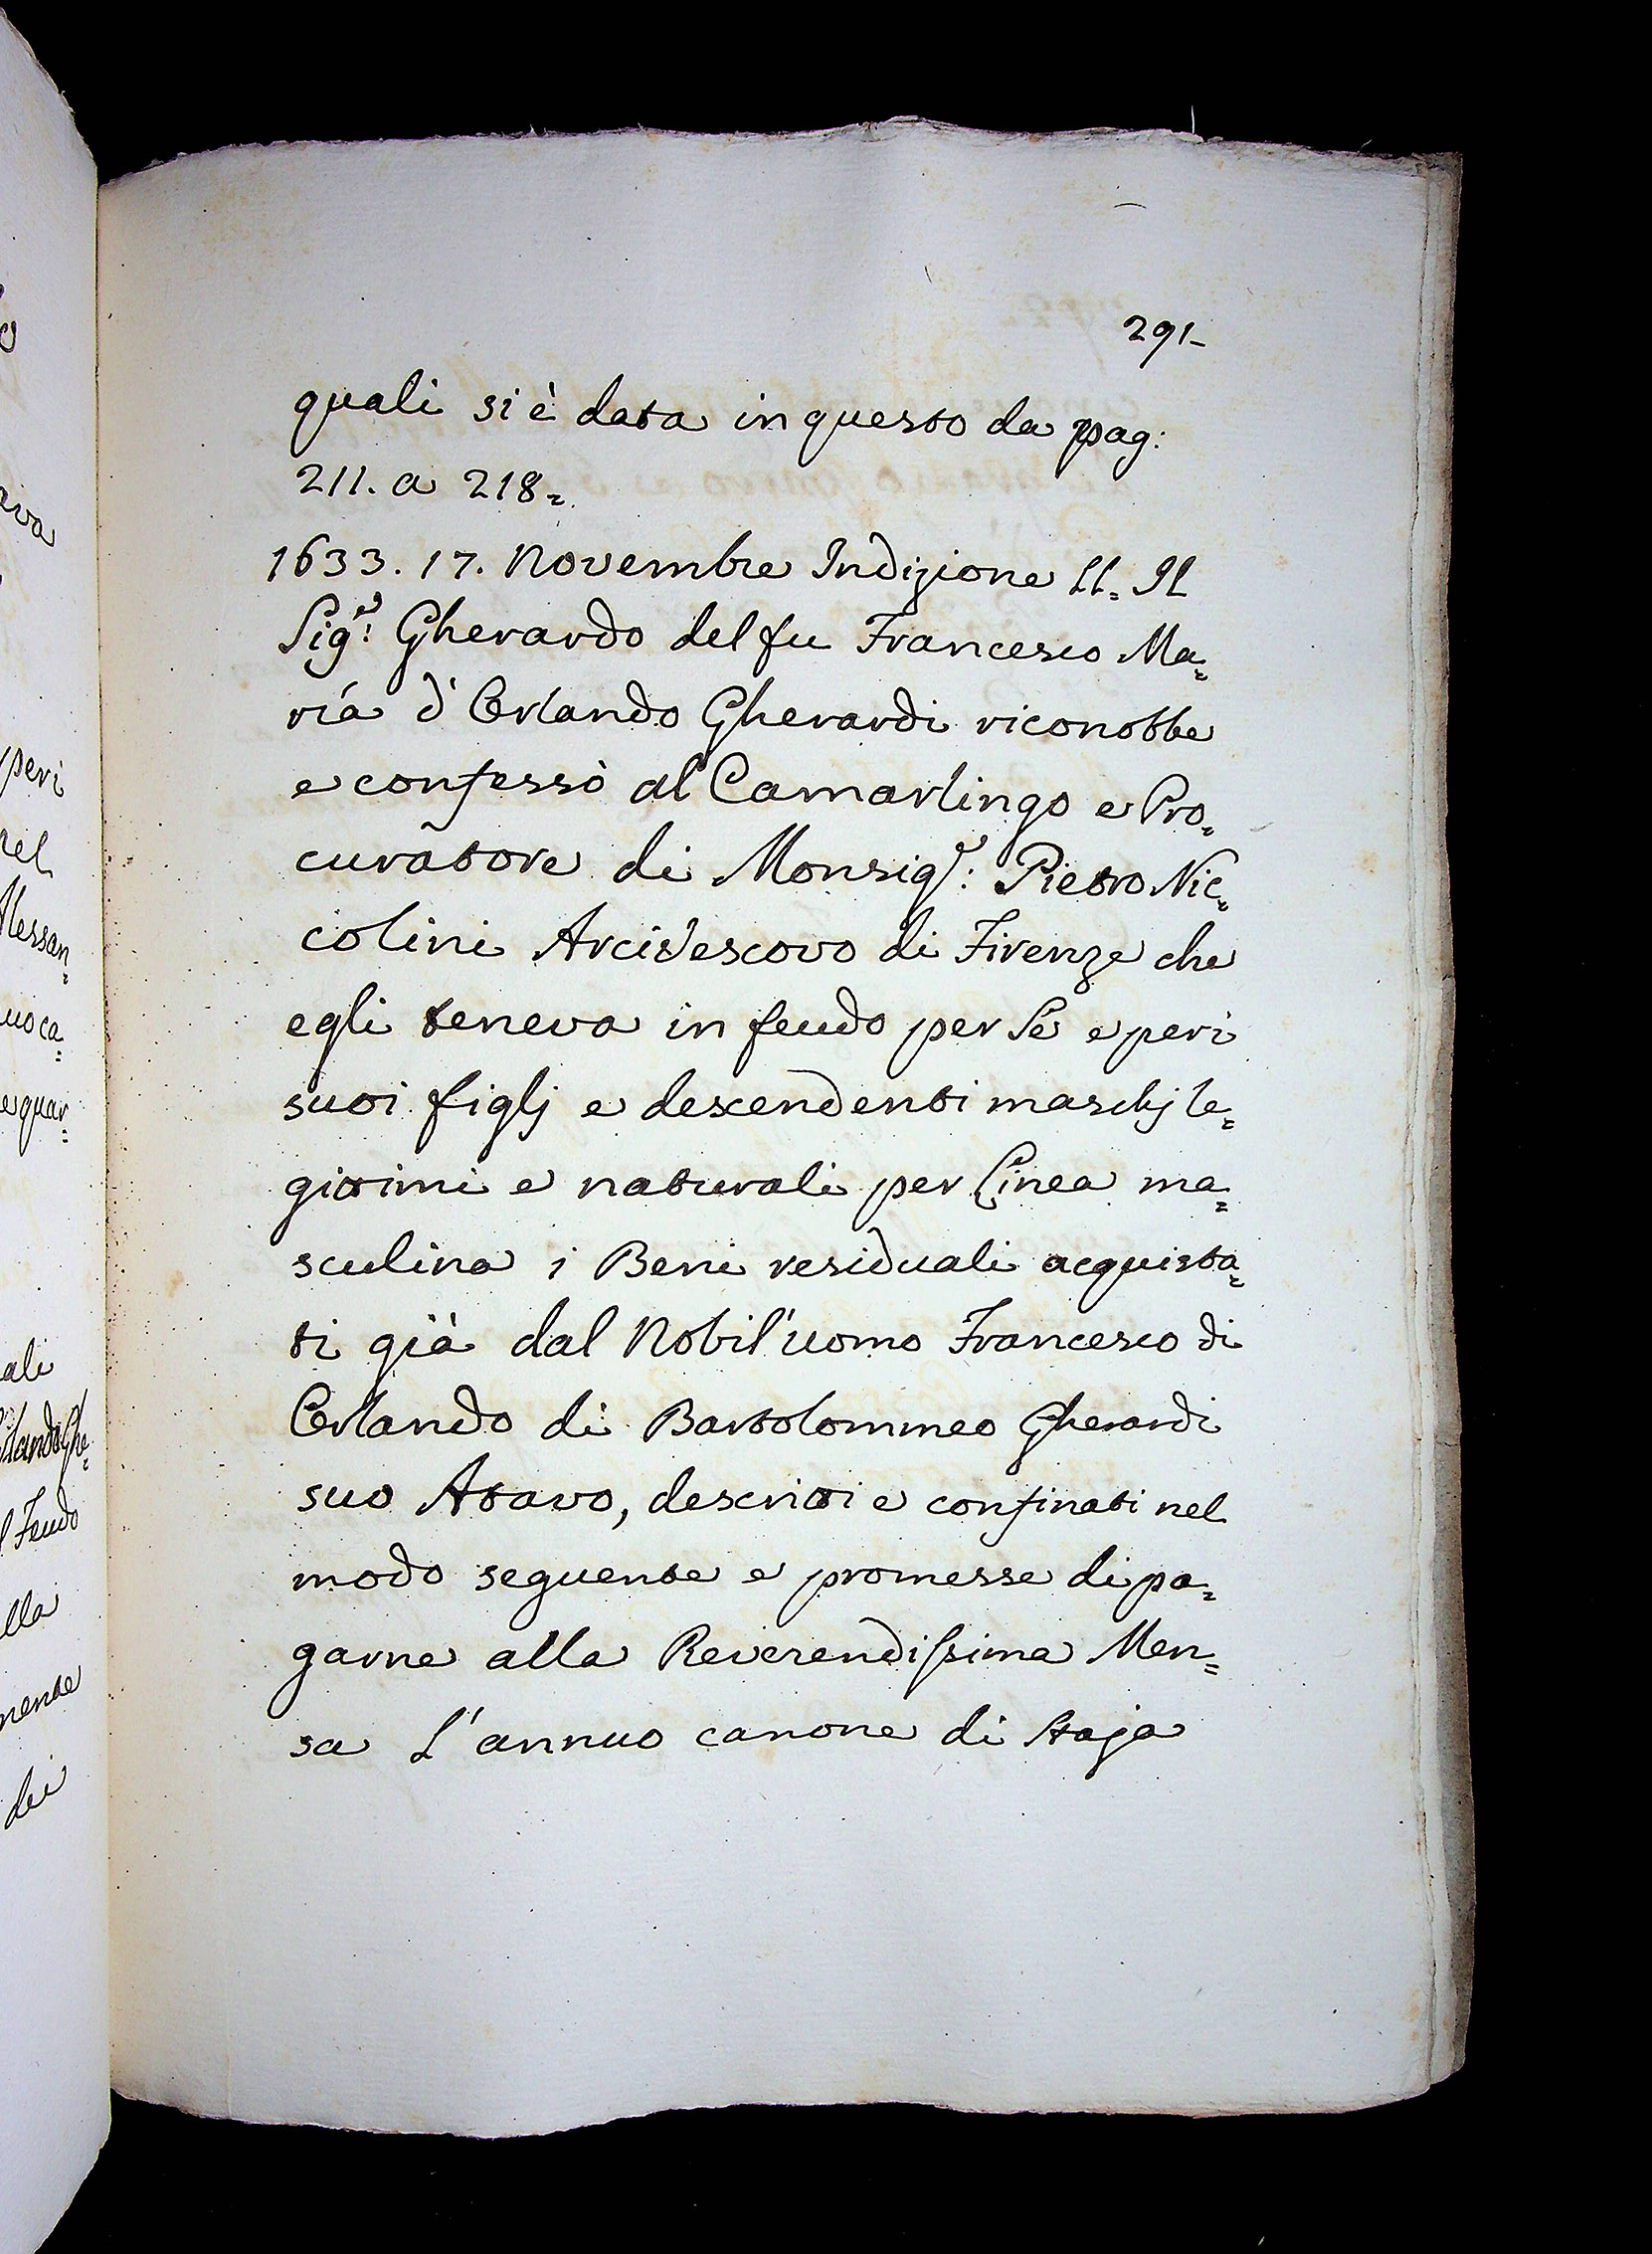 291-
quali si è data in questo da pag:
211. a 218=
1633. 17. Novembre Indizione II. Il
Sig.e: Gherardo del fu Francesco Ma=
ria d'Orlando Gherardi riconobbe
e confessò al Camarlingo e Pro=
curatore di Monsig.e: Pietro Nic=
colini Arcivescovo di Firenze che
egli teneva in feudo per Se e peri
suoi figlj e descendenti maschj le=
gitimi e naturali per Linea ma=
sculina i Beni residuali acquista=
ti già dal Nobil'uomo Francesco di
Orlando di Bartolommeo Gherardi
suo Atavo, descritti e confinati nel
modo seguente e promesse di pa=
garne alla Reverendissima Men=
sa L'annuo canone di staja